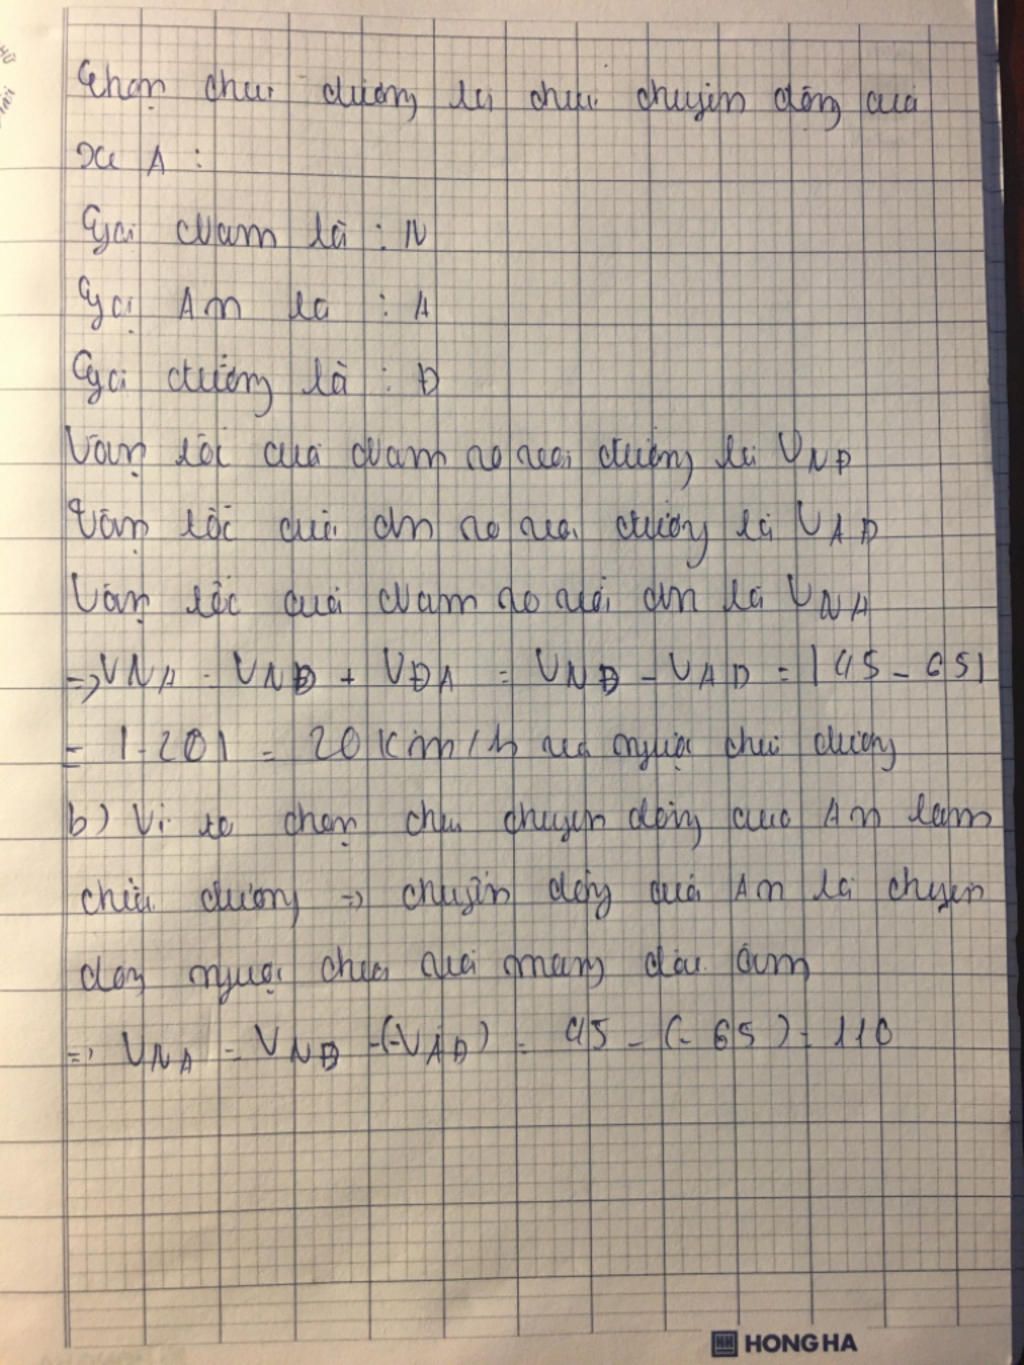 Chọn chiều dương là chiều chuyển động của
xe A :
Gọi Nam là : N
Gọi An là : A
Gọi đường là : Đ
Vận tốc của Nam so với đường là VNĐ
Vận tốc của An so với đường là VAĐ
Vận tốc của Nam so với An là VNA
=> VNA = VNĐ + VĐA = VNĐ - VAĐ = |45 - 65|
= |-20| = 20 km/h và ngược chiều dương
b) Vì ta chọn chiều chuyển động của An làm
chiều dương => chuyển động của An là chuyển
động ngược chiều mang dấu âm
=> VNA = VNĐ -(-VAĐ) = 45 - (-65) = 110
HONG HA